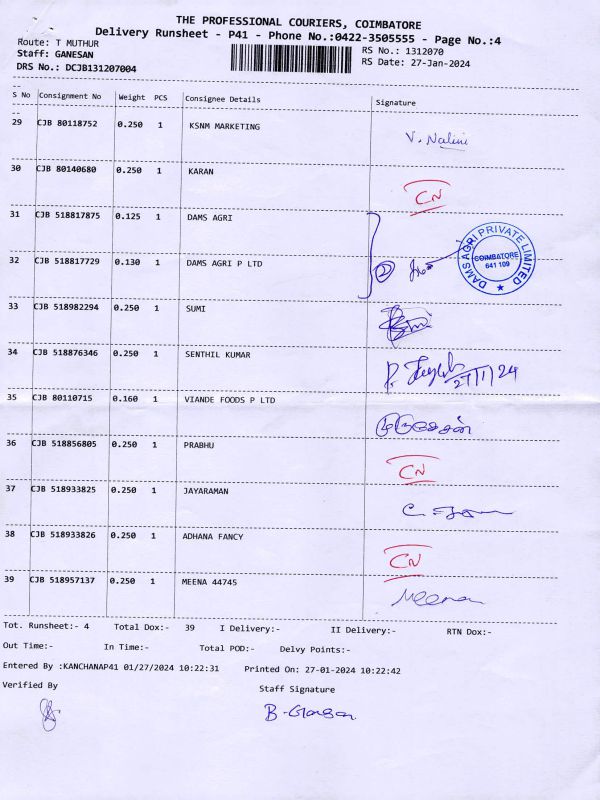 THE PROFESSIONAL COURIERS, COIMBATORE
Delivery Runsheet - P41 - Phone No.:0422-3505555 - Page No.:4
Route: T MUTHUR
RS No.: 1312070
Staff: GANESAN
RS Date: 27-Jan-2024
DRS No.: DCJB131207004
S No Consignment No Weight PCS Consignee Details Signature
29 CJB 80118752 0.250 1 KSNM MARKETING V. Nalini
30 CJB 80140680 0.250 1 KARAN CN
31 CJB 518817875 0.125 1 DAMS AGRI
32 CJB 518817729 0.130 1 DAMS AGRI P LTD 2
DAMS AGRI PRIVATE LIMITED
COIMBATORE
641 109
33 CJB 518982294 0.250 1 SUMI
34 CJB 518876346 0.250 1 SENTHIL KUMAR 27/1/24
35 CJB 80110715 0.160 1 VIANDE FOODS P LTD
36 CJB 518856805 0.250 1 PRABHU CN
37 CJB 518933825 0.250 1 JAYARAMAN
38 CJB 518933826 0.250 1 ADHANA FANCY CN
39 CJB 518957137 0.250 1 MEENA 44745 Meena
Tot. Runsheet:- 4 Total Dox:- 39 I Delivery:- II Delivery:- RTN Dox:-
Out Time:- In Time:- Total POD:- Delvy Points:-
Entered By :KANCHANAP41 01/27/2024 10:22:31 Printed On: 27-01-2024 10:22:42
Verified By Staff Signature